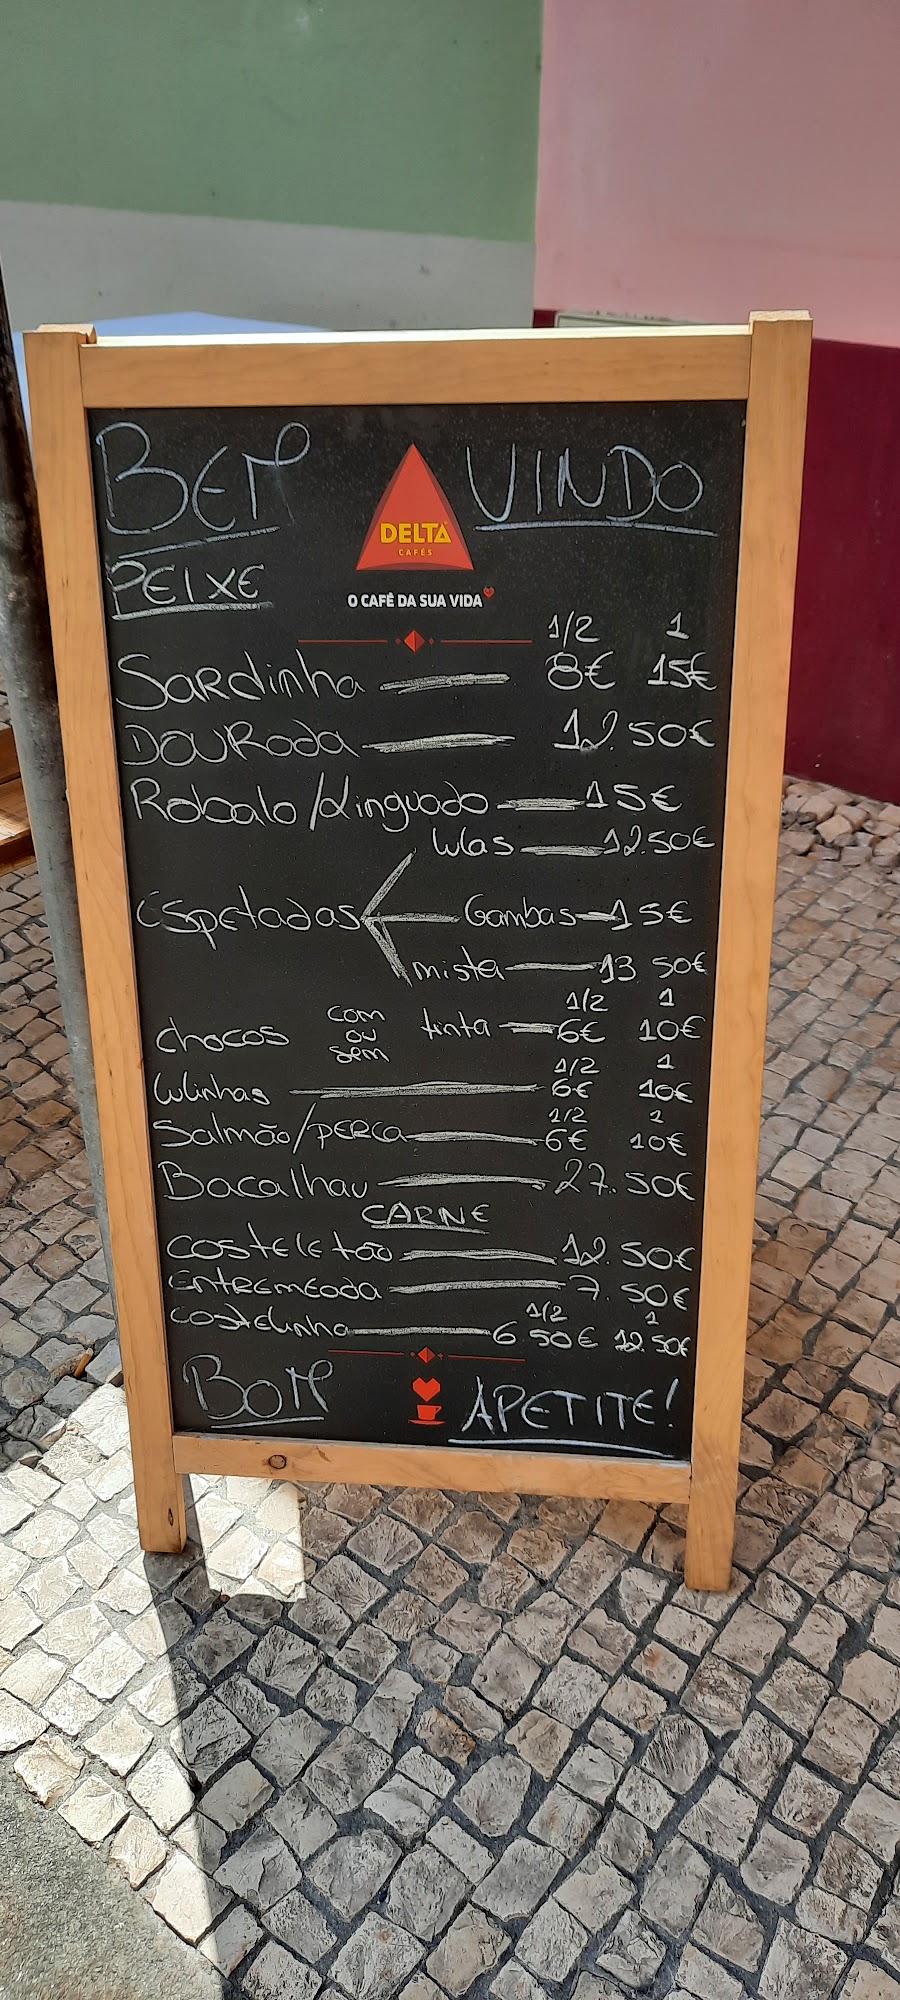 BEM VINDO
DELTA
CAFÉS
O CAFÉ DA SUA VIDA
PEIXE
1/2 1
Sardinha 8€ 15€
DOURada 12.50€
Robalo/Linguado 15€
lulas 12.50€
Espetadas Gambas 15€
mista 13 50€
1/2 1
chocos com ou sem tinta 6€ 10€
1/2 1
lulinhas 6€ 10€
1/2 1
Salmão/perca 6€ 10€
Bacalhau 27.50€
CARNE
costeletão 12.50€
Entremeada 7.50€
1/2 1
costelinha 6 50€ 12.50€
BOM APETITE!